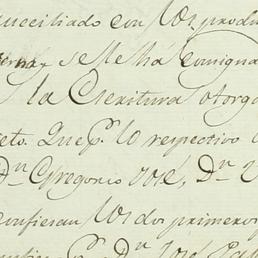 con los produ
se le há consigna
la Escritura otorg
Que p.r lo respectivo
D.n Gregorio José, D.n
confiesan los dos primeros
D.n José